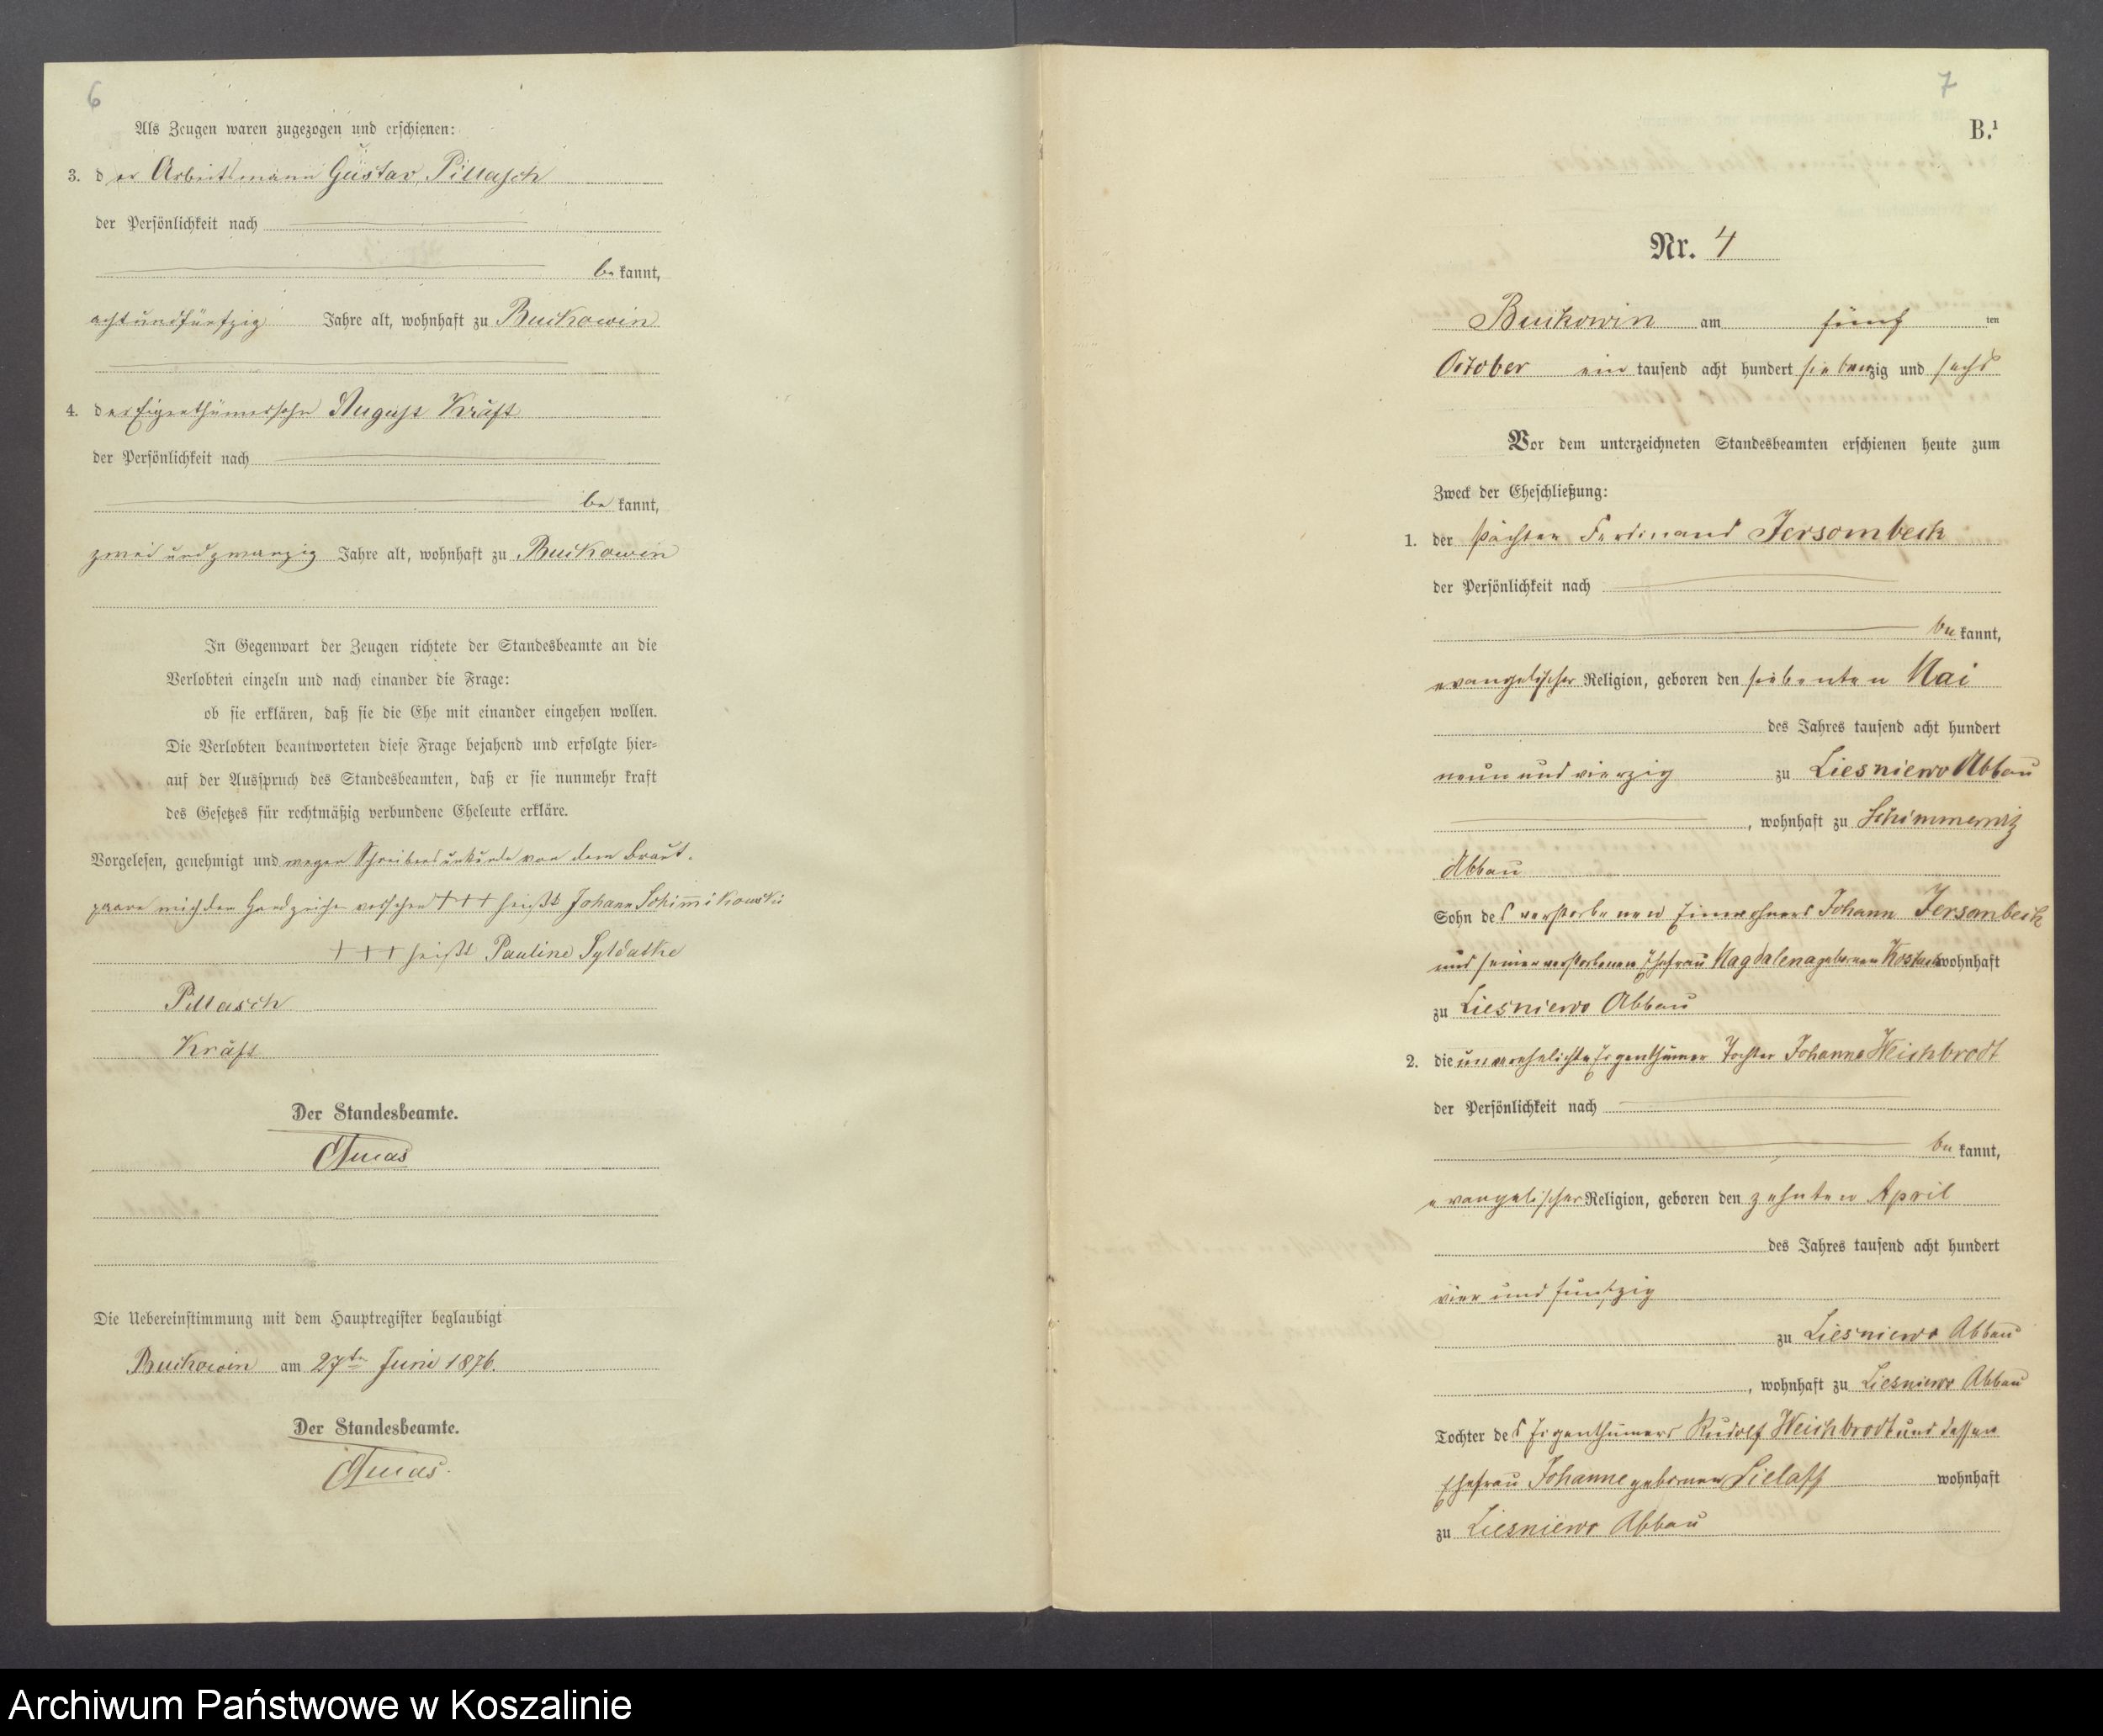 6
Als Zeugen waren zugezogen und erschienen:
3. der Arbeitsmann Gustav Pillasch
der Persönlichkeit nach
be kannt,
achtundfünfzig Jahre alt, wohnhaft zu Buckowin
4. der Eigenthümersohn August Kräft
der Persönlichkeit nach
be kannt,
zwei und zwanzig Jahre alt, wohnhaft zu Buckowin
In Gegenwart der Zeugen richtete der Standesbeamte an die
Verlobten einzeln und nach einander die Frage:
ob sie erklären, daß sie die Ehe mit einander eingehen wollen.
Die Verlobten beantworteten diese Frage bejahend und erfolgte hier-
auf der Ausspruch des Standesbeamten, daß er sie nunmehr kraft
des Gesetzes für rechtmäßig verbundene Eheleute erkläre.
Vorgelesen, genehmigt und wegen Schreibensunkunde von dem Braut-
paare mit den Handzeichen versehen +++ heißt Johann Schimikowski
+++ heißt Pauline Syldatke
Pillasch
Kräft
Der Standesbeamte.
Die Uebereinstimmung mit dem Hauptregister beglaubigt
Buckowin am 27ten Juni 1876.
Der Standesbeamte.
7
B.1
Nr. 4
Buckowin am fünf ten
October ein tausend acht hundert siebenzig und sechs
Vor dem unterzeichneten Standesbeamten erschienen heute zum
Zweck der Eheschließung:
1. der Pächter Ferdinand Jersombeck
der Persönlichkeit nach
be kannt,
evangelischer Religion, geboren den siebenten Mai
des Jahres tausend acht hundert
neun und vierzig zu Liesniewo Abbau
, wohnhaft zu Schimmerwitz
Abbau
Sohn des verstorbenen Einwohners Johann Jersombeck
und seiner verstorbenen Ehefrau Magdalena gebornen wohnhaft
zu Liesniewo Abbau
2. die unverehelichte Eigenthümer Tochter Johanne Weichbrodt
der Persönlichkeit nach
be kannt,
evangelischer Religion, geboren den zehnten April
des Jahres tausend acht hundert
vier und funfzig
zu Liesniewo Abbau
, wohnhaft zu Liesniewo Abbau
Tochter des Eigenthümers Rudolf Weichbrodt und dessen
Ehefrau Johanne gebornen Lielaff wohnhaft
zu Liesniewo Abbau
Archiwum Państwowe w Koszalinie